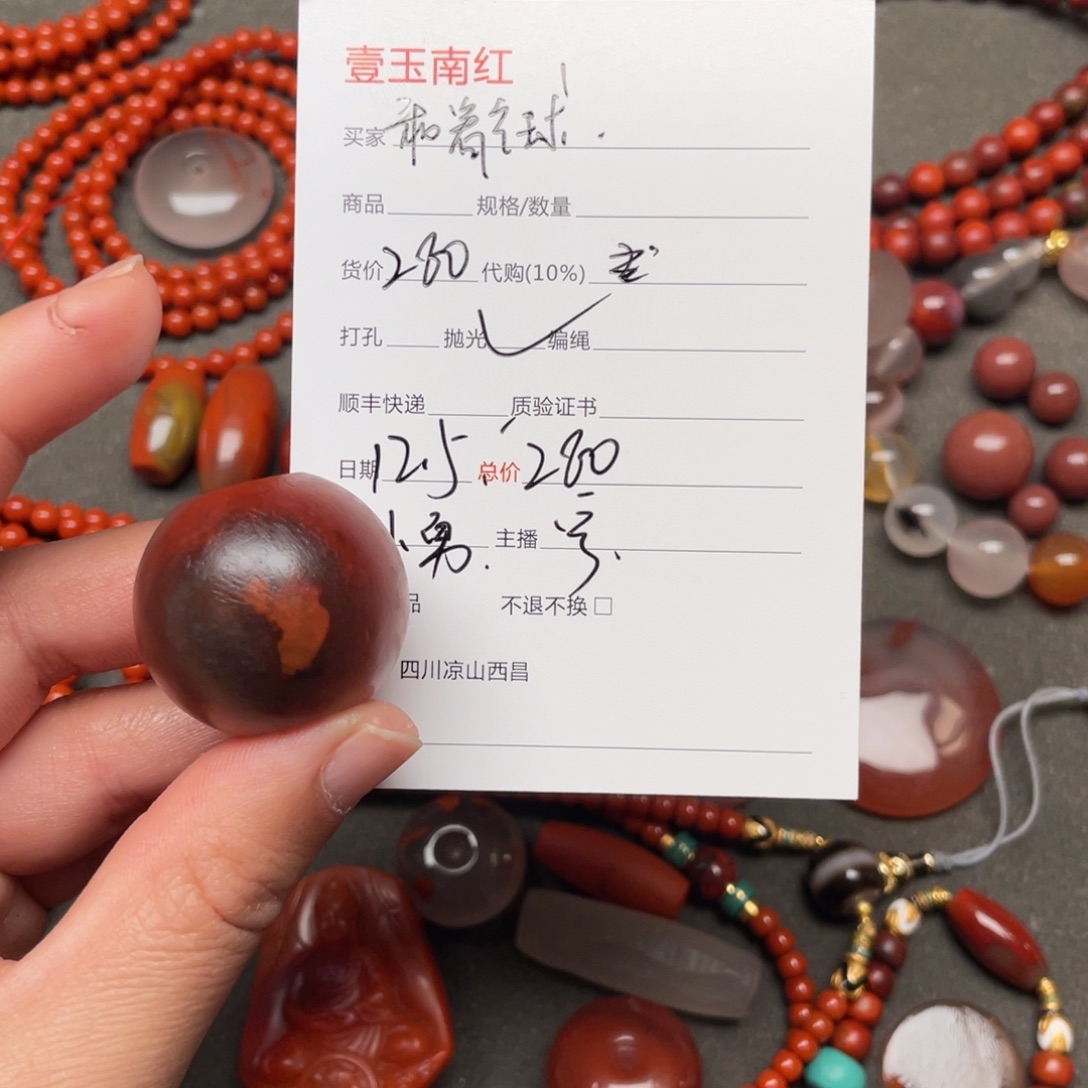 壹玉南红
买家
商品 规格/数量
货价 280 代购(10%)
打孔 抛光 ✓ 编绳
顺丰快递 质验证书
日期 12.5 总价 280
小勇. 主播
品 不退不换 □
四川凉山西昌